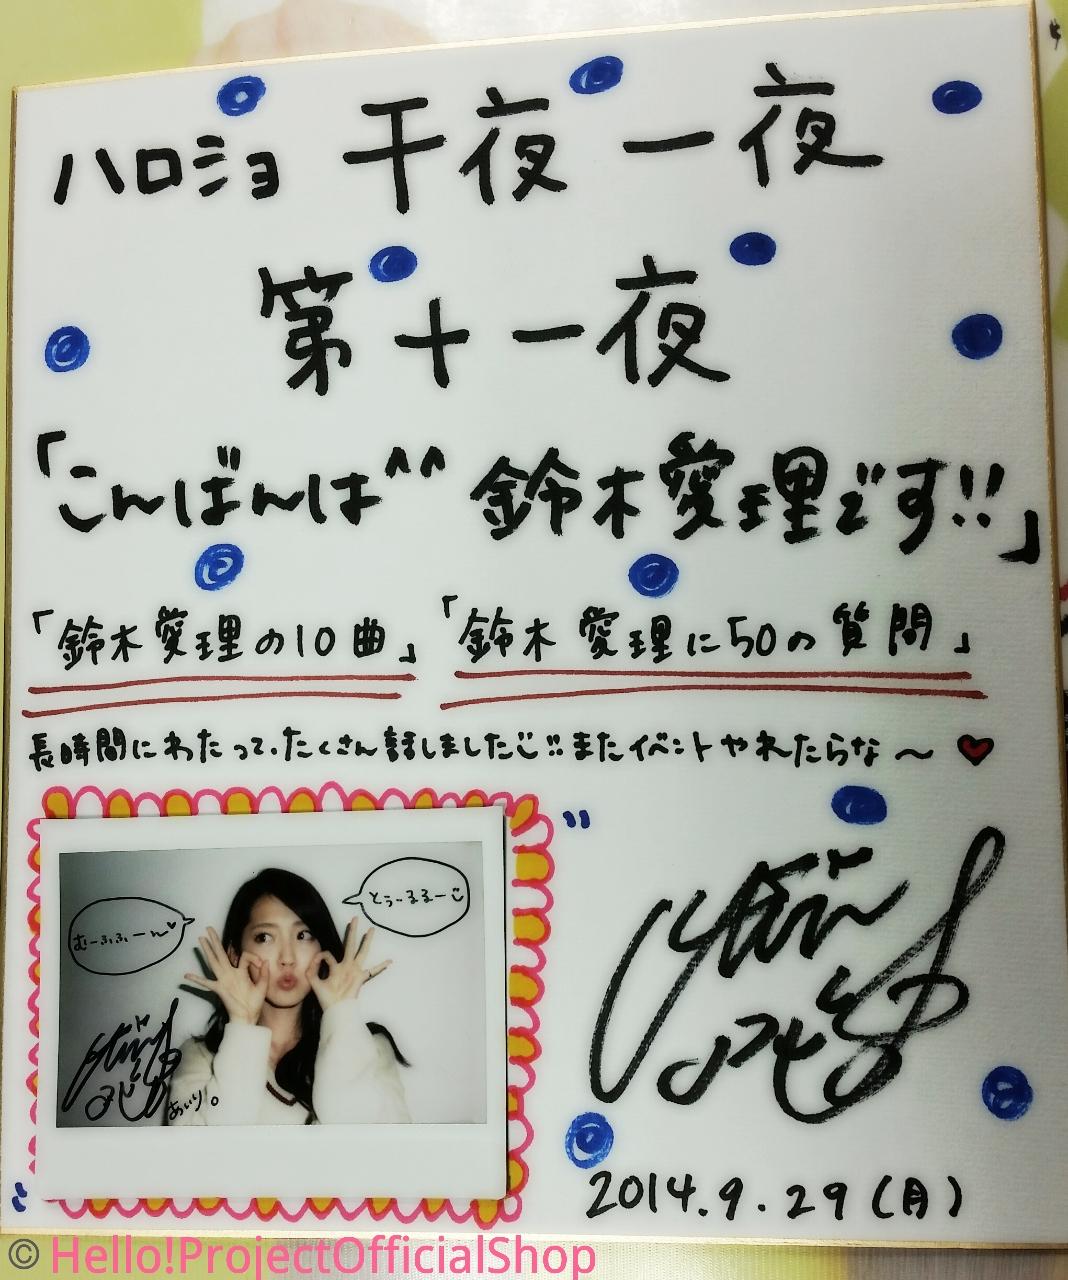 ハロショ 千夜一夜
第十一夜
「こんばんは^^ 鈴木愛理です!!」
「鈴木愛理の10曲」「鈴木愛理に50の質問」
長時間にわたって、たくさん話しました!!またイベントやれたらな〜♥
むーふふーん♡
とぅーるるー
あいり。
2014.9.29(月)
© Hello!ProjectOfficialShop